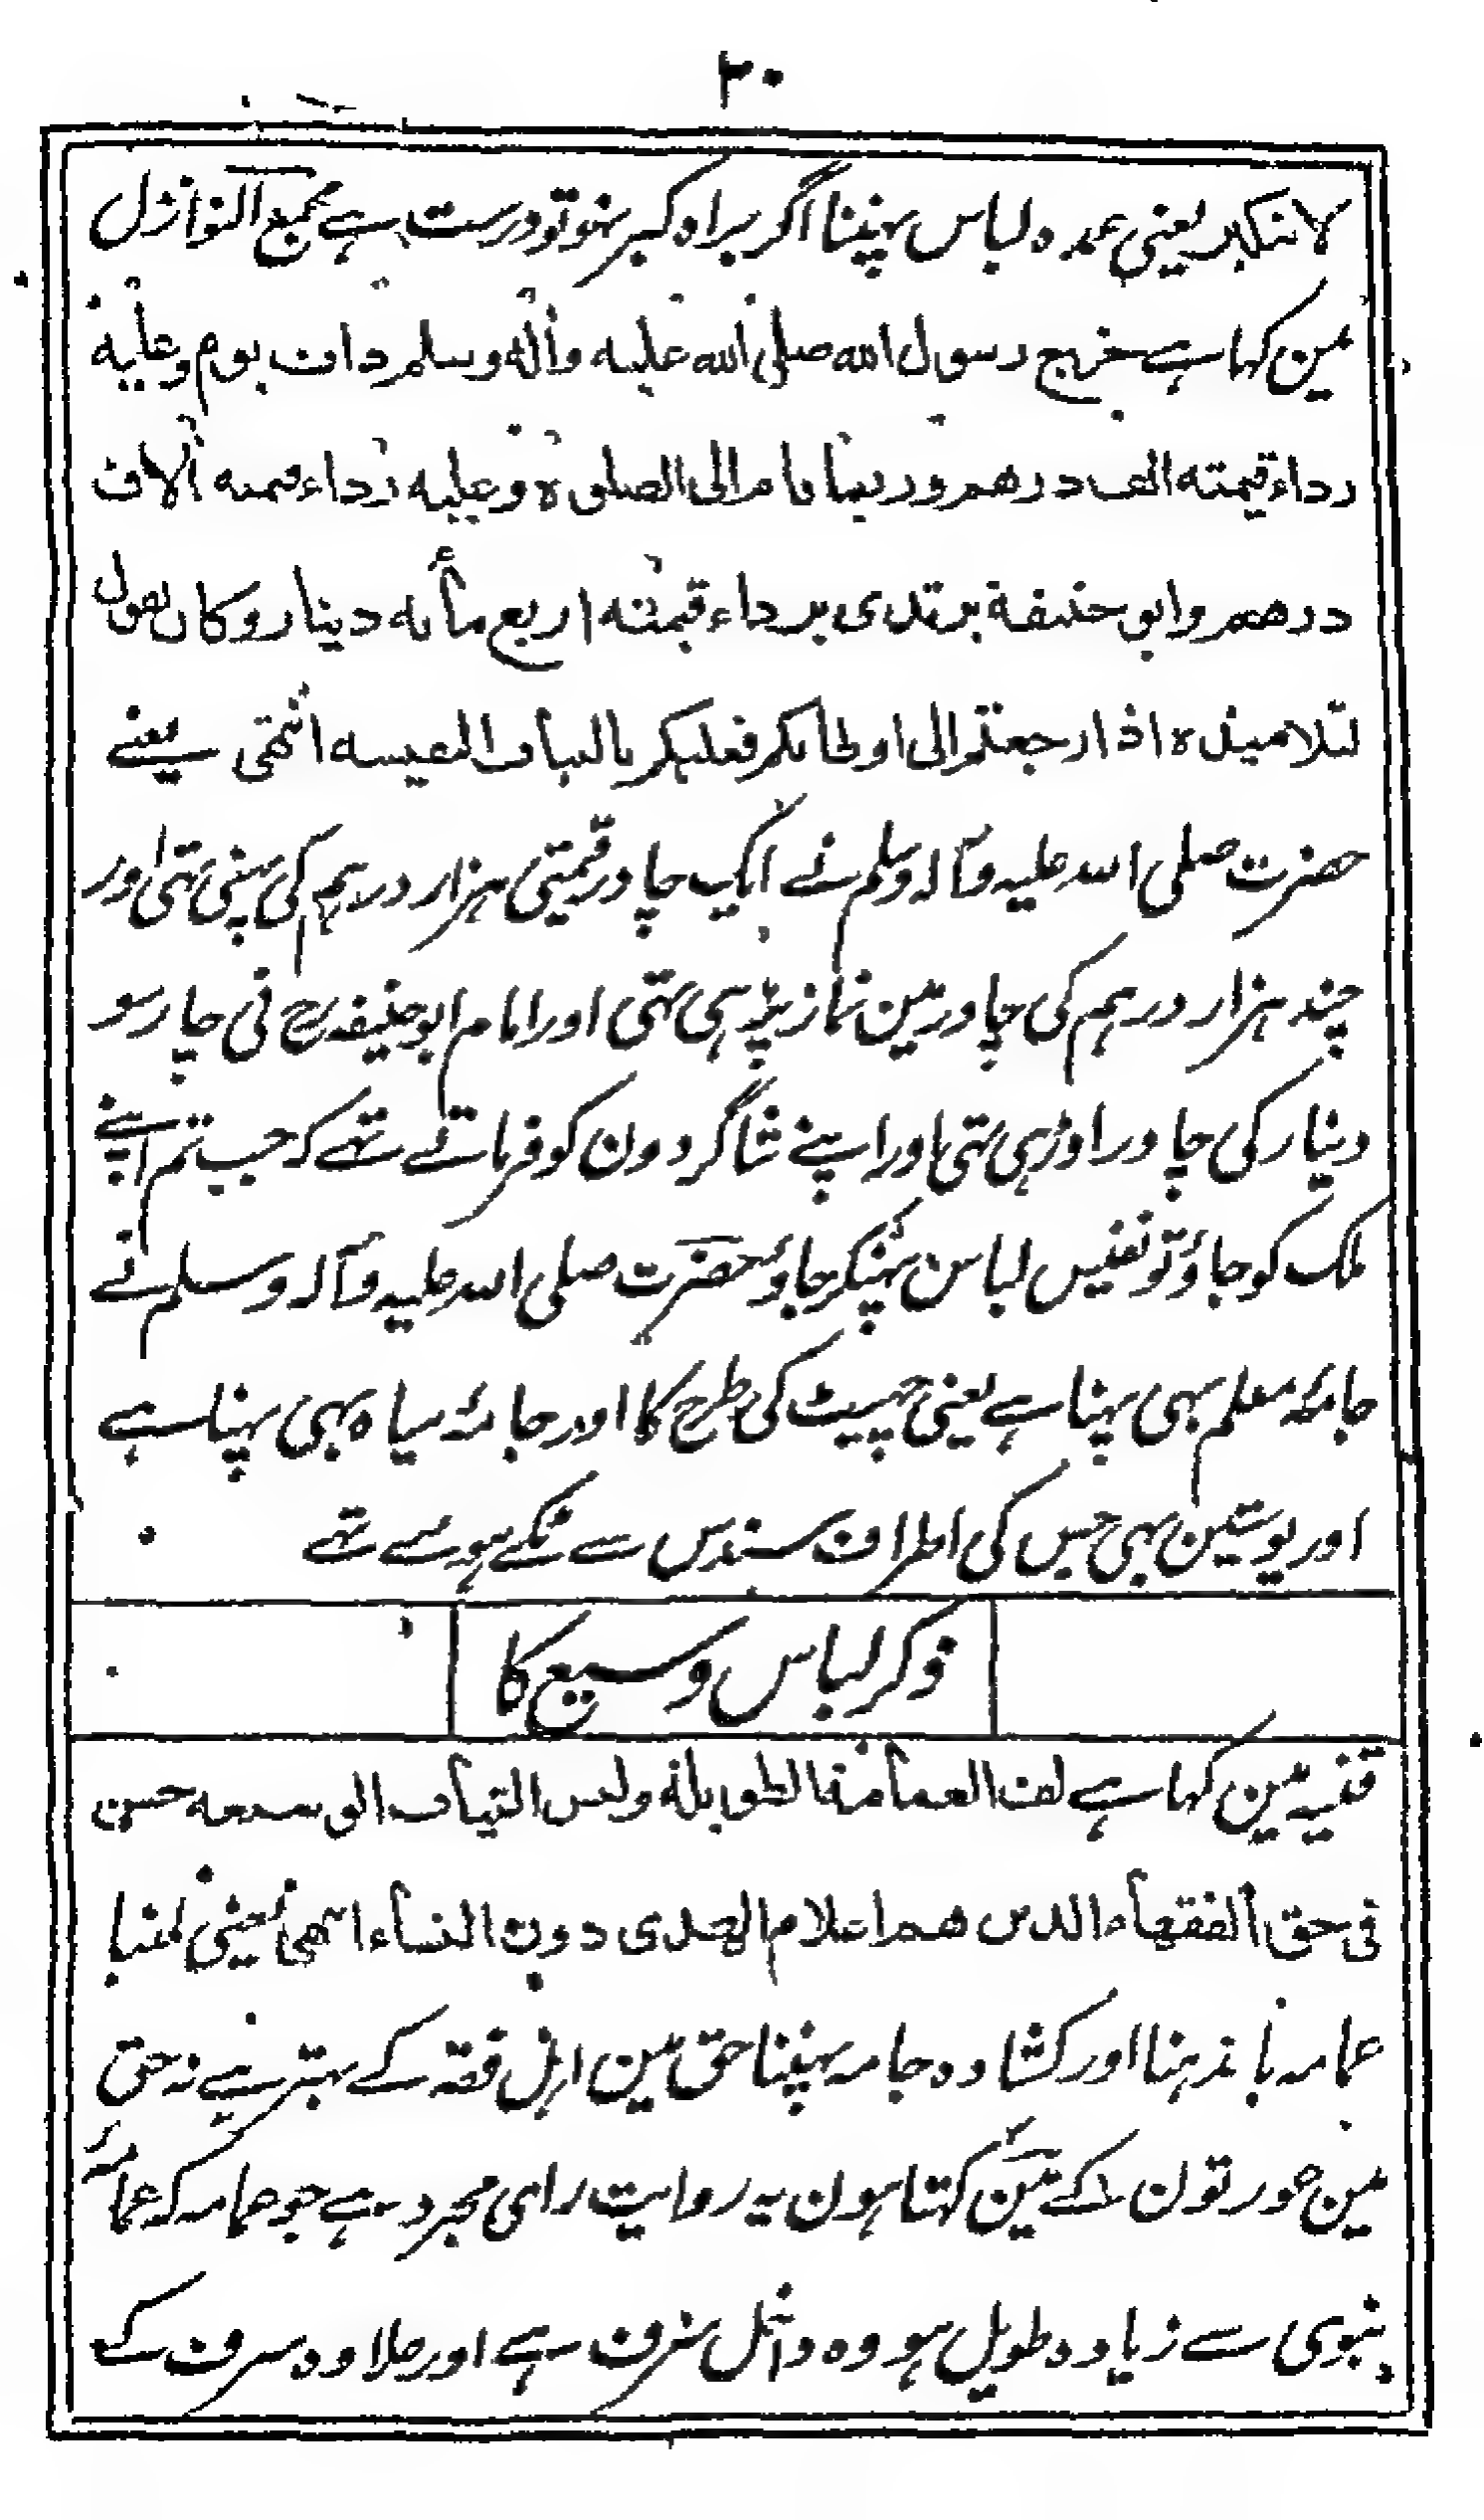 ۲۰
لا تتکبر یعنی عمدہ لباس پہننا اگر براہ کبر نہو تو درست ہے مجمع النوازل
مین کہا ہے خرج رسول الله صلی الله علیه واٰله وسلم ذات یوم وعلیه
رداء قیمته الف درهم وربما قام الی الصلوٰة وعلیه رداء قیمته اٰلاف
درهم وابو حنیفة یرتدی برداء قیمته اربع مأئه دینار وکان یقول
لتلامیذه اذا رجعتم الی اوطانکم فعلیکم بالثیاب النفیسه انتهی یعنے
حضرت صلی اللہ علیہ وآلہ وسلم نے ایک چادر قیمتی ہزار درہم کی پہنی تہی اور
چند ہزار درہم کی چادر مین نماز پڑہی تہی اور امام ابو حنیفہ رح نی چار سو
دینار کی چادر اوڑہی تہی اور اپنے شاگردون کو فرماتے تہے کہ جب تم اپنے
ملک کو جاؤ تو نفیس لباس پہنکر جاؤ حضرت صلی اللہ علیہ وآلہ وسلم نے
جامۂ معلم بہی پہنا ہے یعنی چہیٹ کی طرح کا اور جامۂ سیاہ بہی پہنا ہے
اور پوستین بہی جس کی اطراف سندس سے ٹکے ہوے تہے
ذکر لباس وسیع کا
قنیہ مین کہا ہے لف العمامة الطویلة ولبس الثیاب الوسیعه حسن
فی حق الفقهاء الذین هم اعلام الهدی دون النساء انتهی یعنی لمنبا
عمامہ باندہنا اور کشادہ جامہ پہننا حق مین اہل فقہ کے بہتر ہے نہ حق
مین عورتون کے مین کہتا ہون یہ روایت رای مجرد ہے جو عمامہ کہ عمامۂ
نبوی سے زیادہ طویل ہو وہ داخل سرف ہے اور علاوہ سرف کے